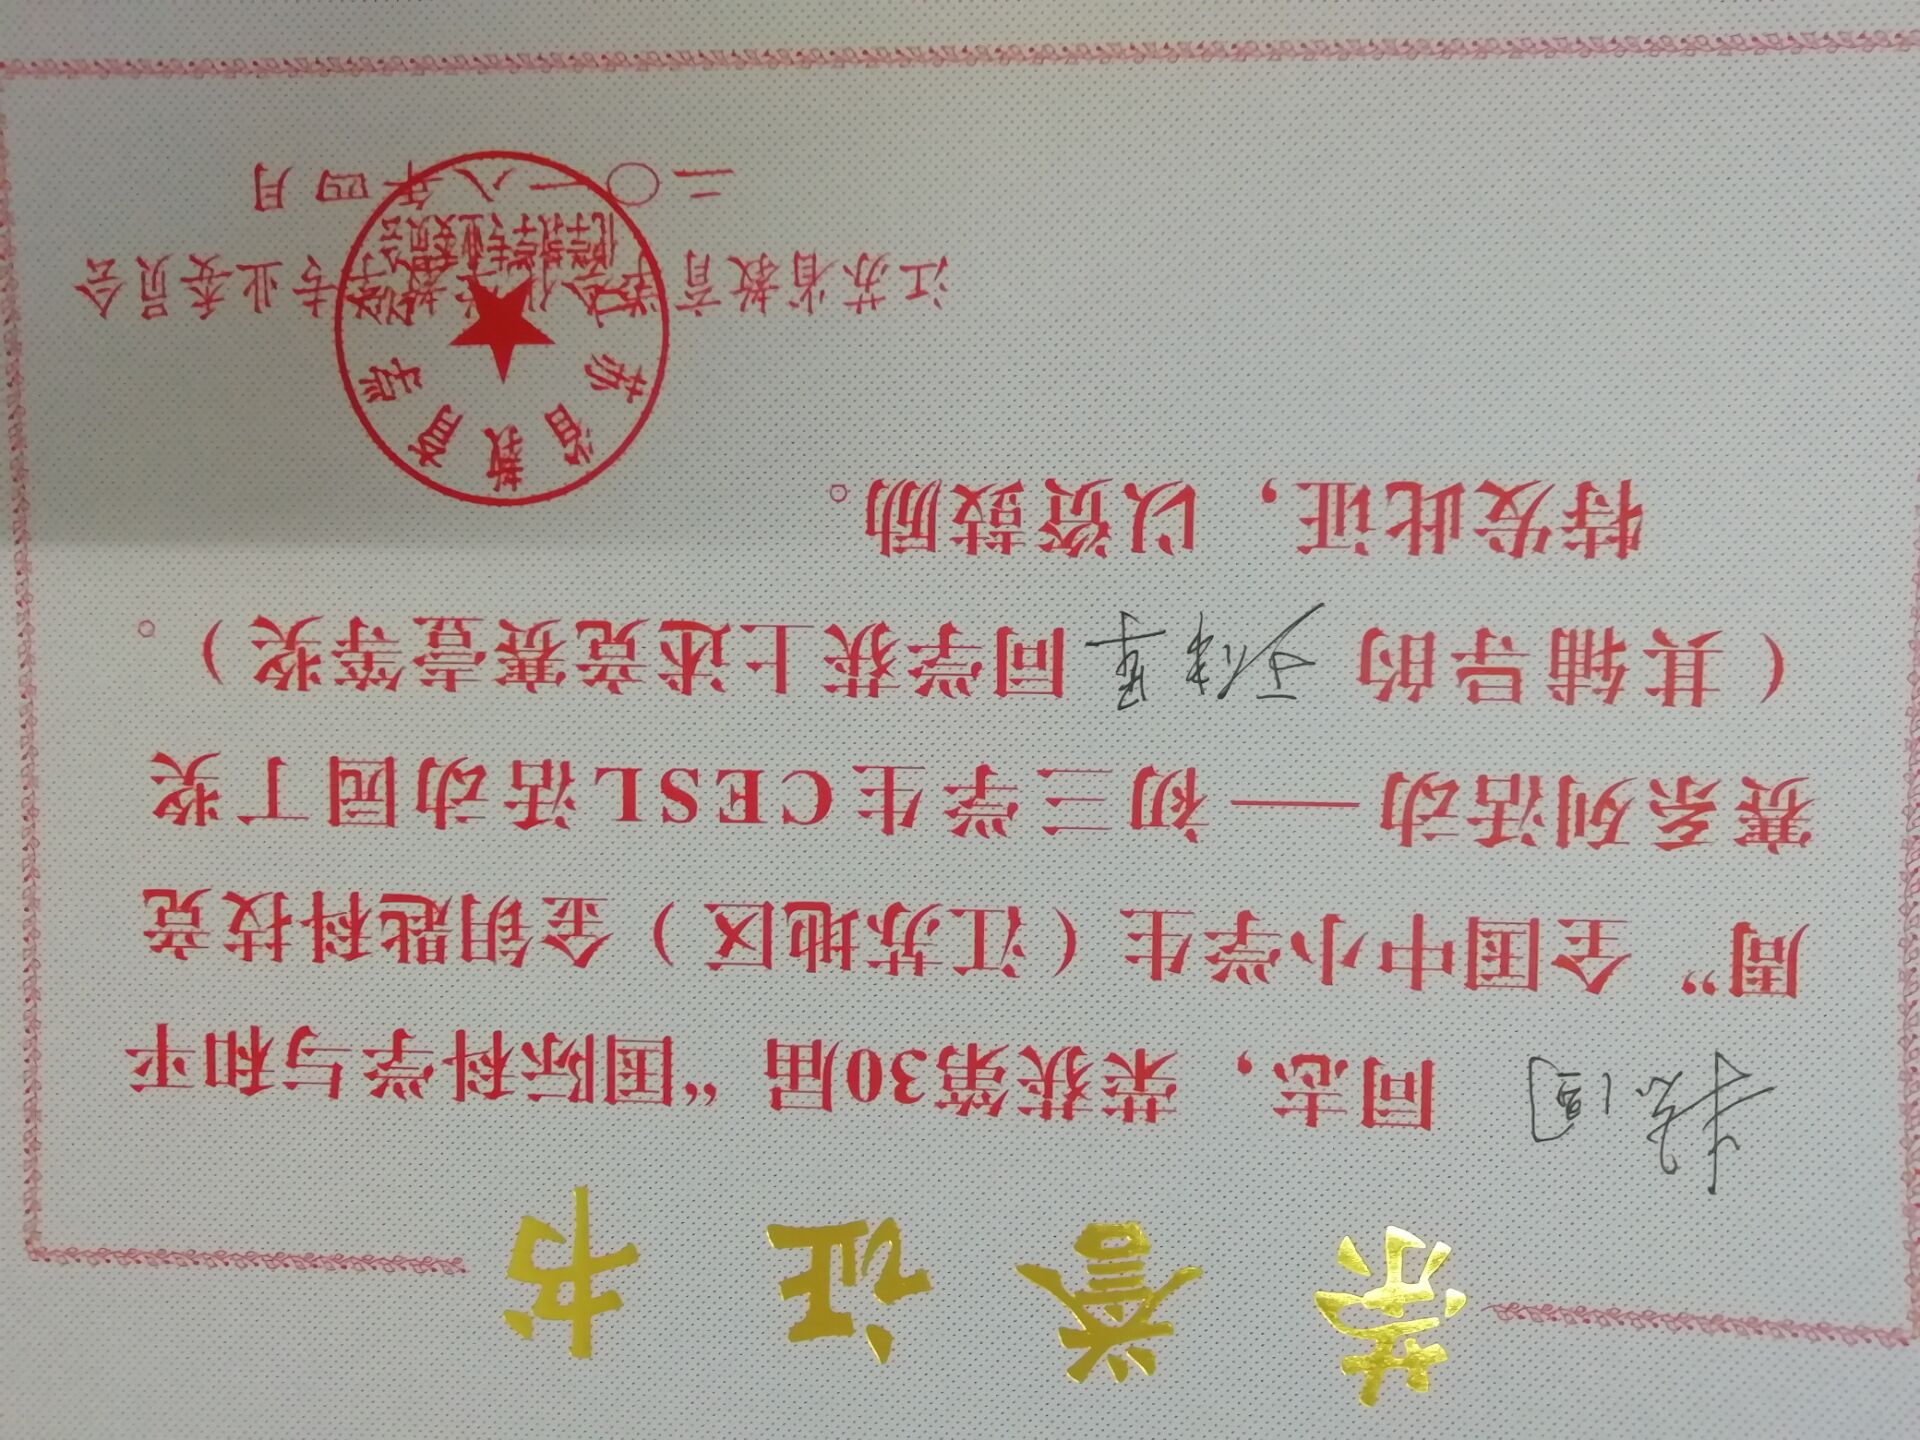 荣誉证书
同志，荣获第30届“国际科学与和平
周”全国中小学生（江苏地区）金钥匙科技竞
赛系列活动——初三学生CESL活动园丁奖
（其辅导的 同学获上述竞赛壹等奖）。
特发此证，以资鼓励。
江苏省教育学会化学教学专业委员会
二〇一八年四月
苏省教育学
化学教学专业委员会